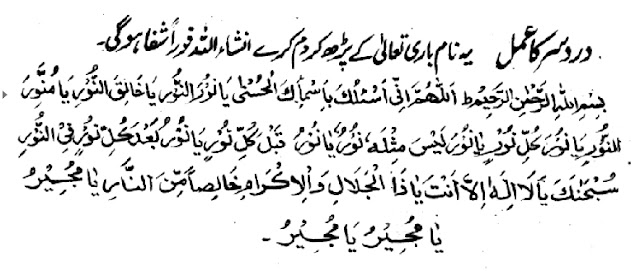 دردسر کا عمل یہ نام باری تعالٰی کے پڑھ کر دم کرے انشاء اللہ فوراً شفا ہوگی۔
بِسْمِ اللّٰهِ الرَّحْمٰنِ الرَّحِيْمِ ط اَللّٰهُمَّ اِنِّىْ اَسْئَلُكَ بِاَسْمَآئِكَ الْحُسْنٰى يَا نُوْرَ النُّوْرِ يَا خَالِقَ النُّوْرِ يَا مُنَوِّرَ
النُّوْرِ يَا نُوْرَ كُلِّ نُوْرٍ يَا نُوْرُ لَيْسَ مِثْلَهٗ نُوْرٌ يَا نُوْرُ قَبْلَ كُلِّ نُوْرٍ يَا نُوْرُ بَعْدَ كُلِّ نُوْرٍ فِى النُّوْرِ
سُبْحٰنَكَ يَا لَا اِلٰهَ اِلَّا اَنْتَ يَا ذَا الْجَلَالِ وَالْاِكْرَامِ خَالِصاً مِّنَ النَّارِ يَا مُجِيْرُ
يَا مُجِيْرُ يَا مُجِيْرُ ۔